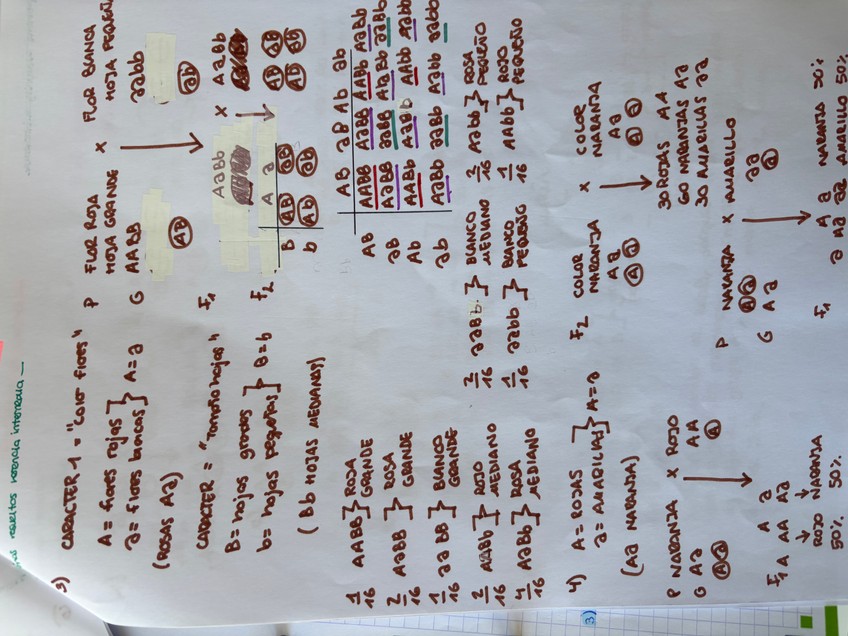 resueltos herencia intermedia
3) CARACTER 1 = "color flores"
A = flores rojas
a = flores blancas } A = a
(ROSAS Aa)
CARACTER = "tamaño hojas"
B = hojas grandes
b = hojas pequeñas } B = b
(Bb HOJAS MEDIANAS)
P FLOR ROJA HOJA GRANDE x FLOR BLANCA HOJA PEQUEÑA
AABB aabb
G AB ab
F1 AaBb x AaBb
F2 A a
B AB aB
b Ab ab
AB Ab aB ab
AB aB Ab ab
AB AABB AaBB AABb AaBb
aB AaBB aaBB AaBb aaBb
Ab AABb AaBb AAbb Aabb
ab AaBb aaBb Aabb aabb
1/16 AABB } ROJA GRANDE
2/16 AaBB } ROSA GRANDE
1/16 aaBB } BLANCO GRANDE
2/16 AABb } ROJO MEDIANO
4/16 AaBb } ROSA MEDIANO
2/16 aaBb } BLANCO MEDIANO
1/16 aabb } BLANCO PEQUEÑO
2/16 Aabb } ROSA PEQUEÑO
1/16 AAbb } ROJO PEQUEÑO
4) A = ROJAS
a = AMARILLAS } A = a
(Aa NARANJA)
F2 COLOR NARANJA x COLOR NARANJA
Aa Aa
A a A a
30 ROJAS AA
60 NARANJAS Aa
30 AMARILLAS aa
P NARANJA x ROJO
G Aa AA
A a A
F1 A a
A AA Aa
ROJO NARANJA
50% 50%
P NARANJA x AMARILLO
A a aa
G A a a
F1 A a
a Aa aa
NARANJA 50%
AMARILLO 50%
3)